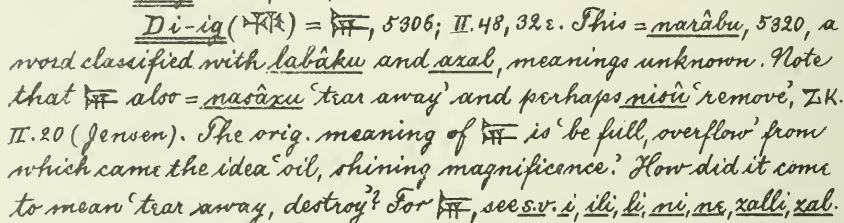 Di-ig (𒄭𒄭) = 𒉌, 5306; II. 48, 32e. This = narâbu, 5320, a
word classified with labâku and azal, meanings unknown. Note
that 𒉌 also = nasâxu ‘tear away’ and perhaps nisû ‘remove’, ZK.
II. 20 (Jensen). The orig. meaning of 𒉌 is ‘be full, overflow’ from
which came the idea ‘oil, shining magnificence.’ How did it come
to mean ‘tear away, destroy’? For 𒉌, see s.v. i, ili, li, ni, ne, zalli, zal.